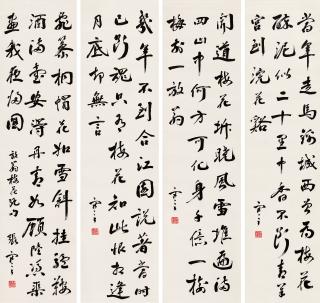 當年走馬錦城西曾為梅花
醉泥似二十里中香不斷青羊
宮到浣花谿
聞道梅花坼曉風雪堆遍滿
四山中何方可化身千億一樹
梅花一放翁
幾年不到合江園說著當時
已斷魂只有梅花知此恨相逢
月底卻無言
亂簪桐帽花如雪斜挂驢鞍
酒滿壺安得丹青如顧陸憑渠
畫我夜歸圖
放翁梅花絕句